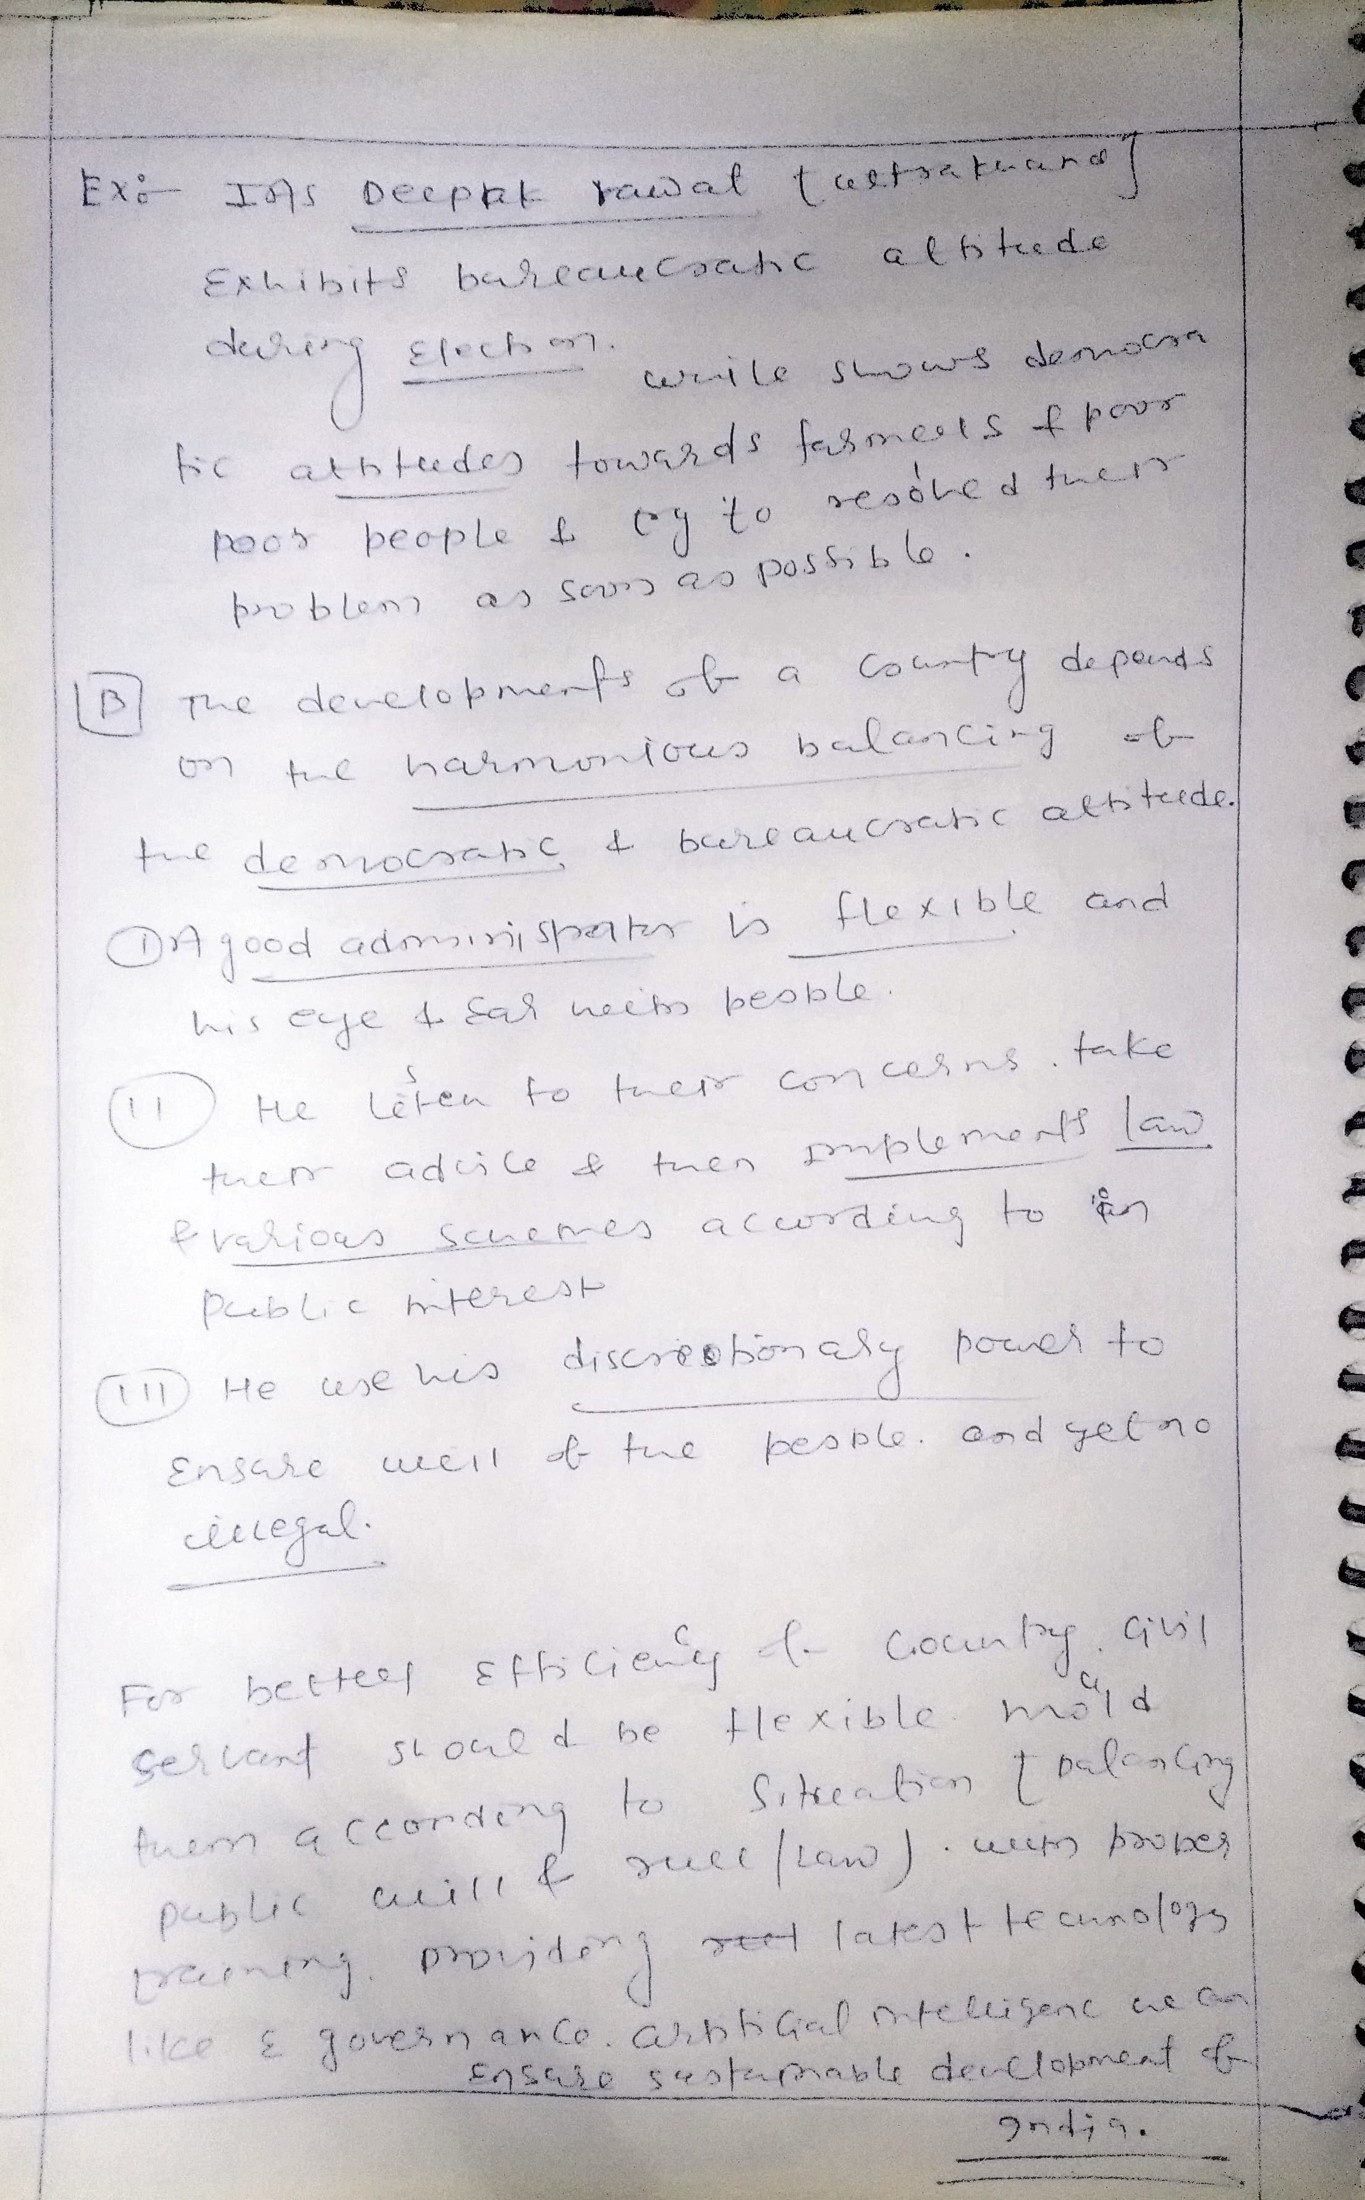 Ex:- IAS Deepak rawat {uttrakhand}
Exhibits bureaucratic attitude
during Election.
while shows democra
tic attitudes towards farmers & poor
poor people & try to resolved their
problem as soon as possible.
B The developments of a country depends
on the harmonious balancing of
the democratic & bureaucratic attitude.
I A good administrator is flexible and
his eye & ear with people.
II He listen to their concerns. take
their advice & then implements law
& various schemes according to in
Public interest
III He use his discretionary power to
Ensure will of the people. and yet no
illegal.
For better Efficiency of Country. Civil
servant should be flexible. mould
them according to Situation { balancing
public will & rule/Law). with proper
training. providing latest technology
like E governance. artificial intelligenc we can
Ensure sustainable development of
India.